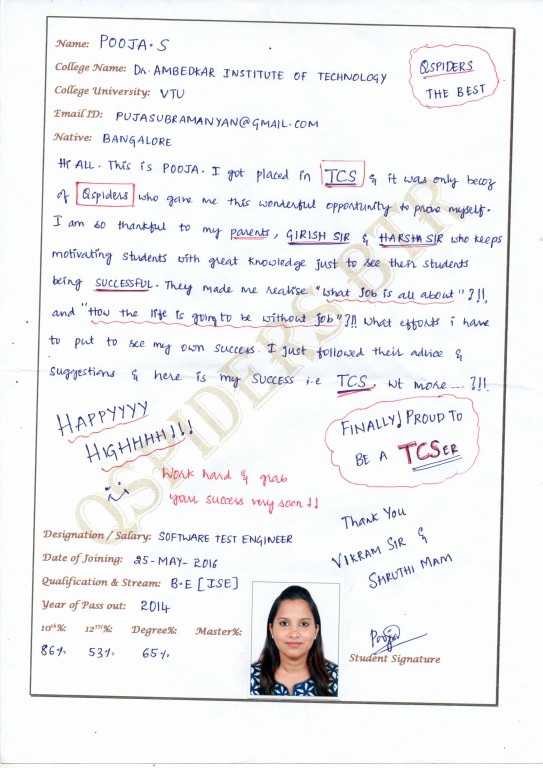 Name: POOJA. S
College Name: Dr. AMBEDKAR INSTITUTE OF TECHNOLOGY
College University: VTU
Email ID: PUJASUBRAMANYAN@GMAIL.COM
Native: BANGALORE
QSPIDERS
THE BEST
Hi ALL. This is POOJA. I got placed in TCS & it was only becoz
of Qspiders who gave me this wonderful opportunity to prove myself.
I am so thankful to my parents, GIRISH SIR & HARSHA SIR who keeps
motivating students with great knowledge just to see their students
being SUCCESSFUL. They made me realise "What Job is all about"?!!,
and "How the life is going to be without job"?!! What efforts i have
to put to see my own success. I just followed their advice &
suggestions & here is my success i.e TCS, wt more ....?!!.
HAPPYYYY
HIGHHHH!!!
FINALLY! PROUD TO
BE A TCSer
Work hard & grab
your success very soon!!
Thank You
VIKRAM SIR &
SHRUTHI MAM
Designation / Salary: SOFTWARE TEST ENGINEER
Date of Joining: 25-MAY-2016
Qualification & Stream: B.E [ISE]
Year of Pass out: 2014
10th%: 12TH%: Degree%: Master%:
86% 53% 65%
Pooja
Student Signature
QSPIDERS BTR